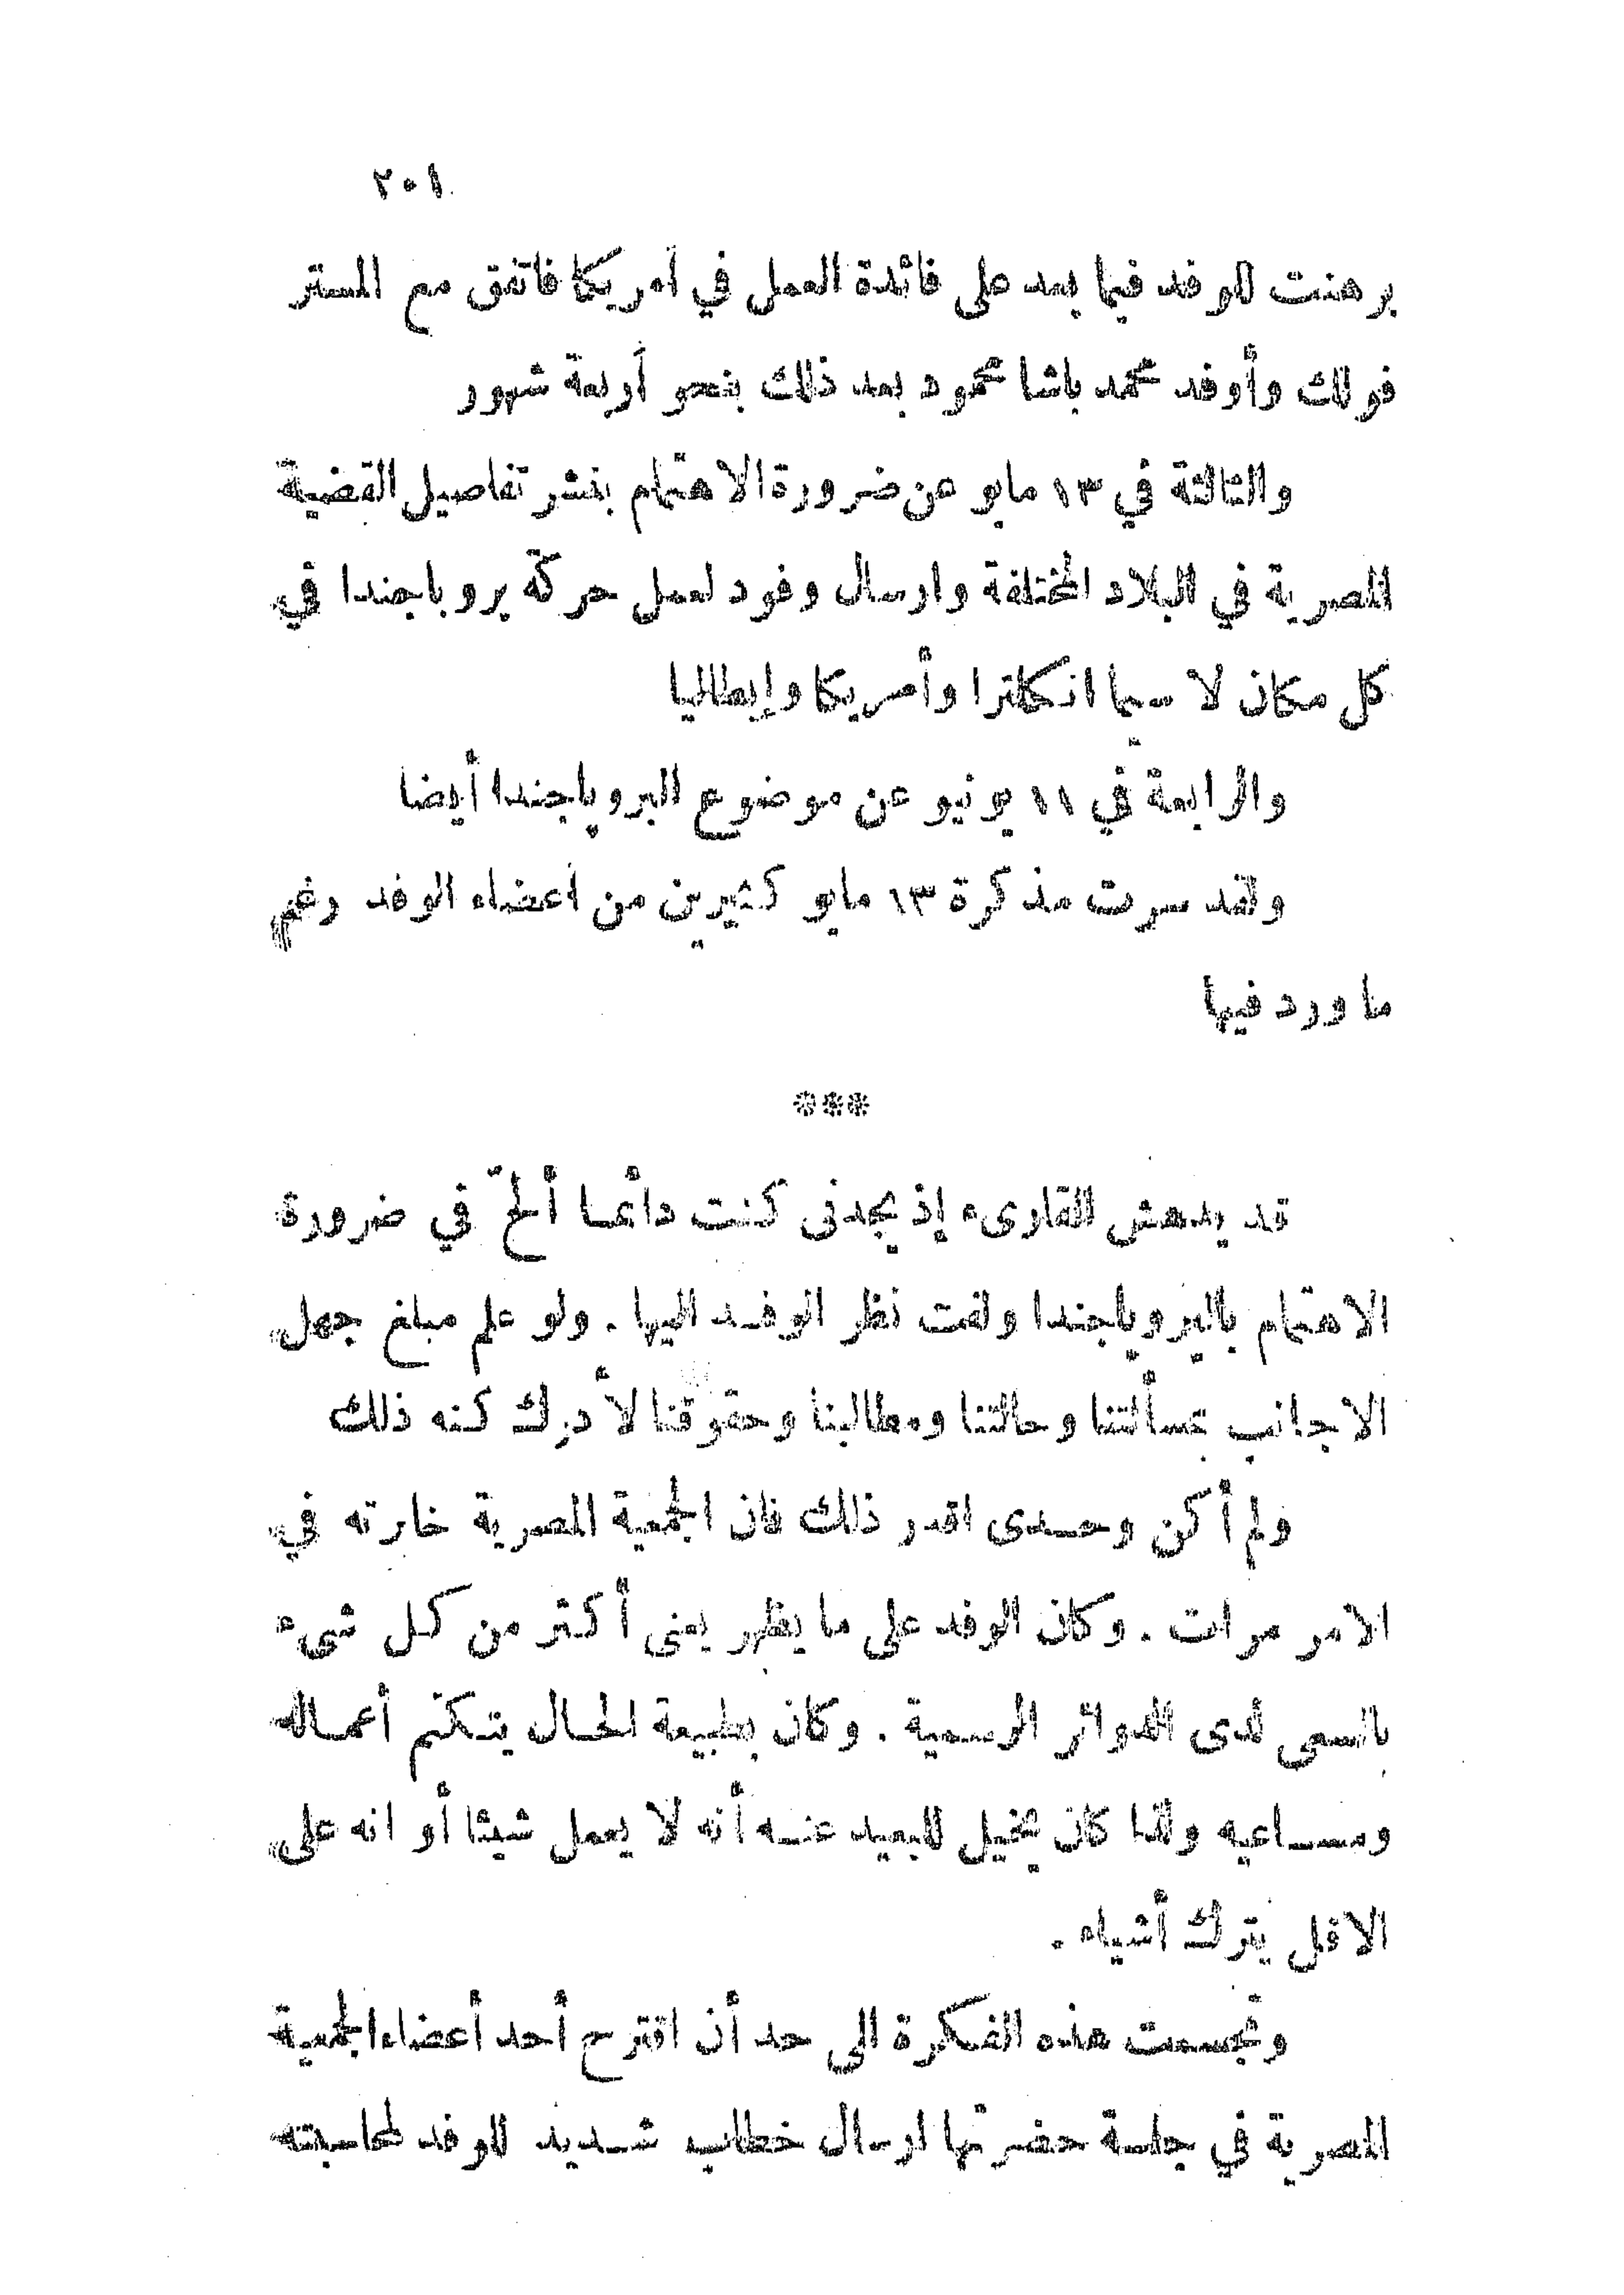 ٢٠١
برهنت للوفد فيما بعد على فائدة العمل في أمريكا فاتفق مع المستر
فولك وأوفد محمد باشا محمود بعد ذلك بنحو أربعة شهور
والثالثة في ١٣ مايو عن ضرورة الاهتمام بنشر تفاصيل القضية
المصرية في البلاد المختلفة وارسال وفود لعمل حركة بروباجندا في
كل مكان لا سيما انكلترا وأمريكا وإيطاليا
والرابعة في ١١ يونيو عن موضوع البروباجندا أيضا
ولقد سرت مذكرة ١٣ مايو كثيرين من اعضاء الوفد رغم
ما ورد فيها
***
قد يدهش القارىء إذ يجدنى كنت دائما ألحّ في ضرورة
الاهتمام بالبروباجندا ولفت نظر الوفد اليها . ولو علم مبلغ جهل
الاجانب بمسألتنا وحالتنا ومطالبنا وحقوقنا لأدرك كنه ذلك
ولم أكن وحدى اقدر ذلك فان الجمعية المصرية خابرته في
الامر مرات . وكان الوفد على ما يظهر يعنى أكثر من كل شىء
بالسعى لدى الدوائر الرسمية . وكان بطبيعة الحال يتكتم أعماله
ومساعيه ولذا كان يخيل للبعيد عنه أنه لا يعمل شيئا أو انه على
الاقل يترك أشياء .
وتجسمت هذه الفكرة الى حد أن اقترح أحد أعضاء الجمعية
المصرية في جلسة حضرتها ارسال خطاب شديد للوفد لمحاسبته